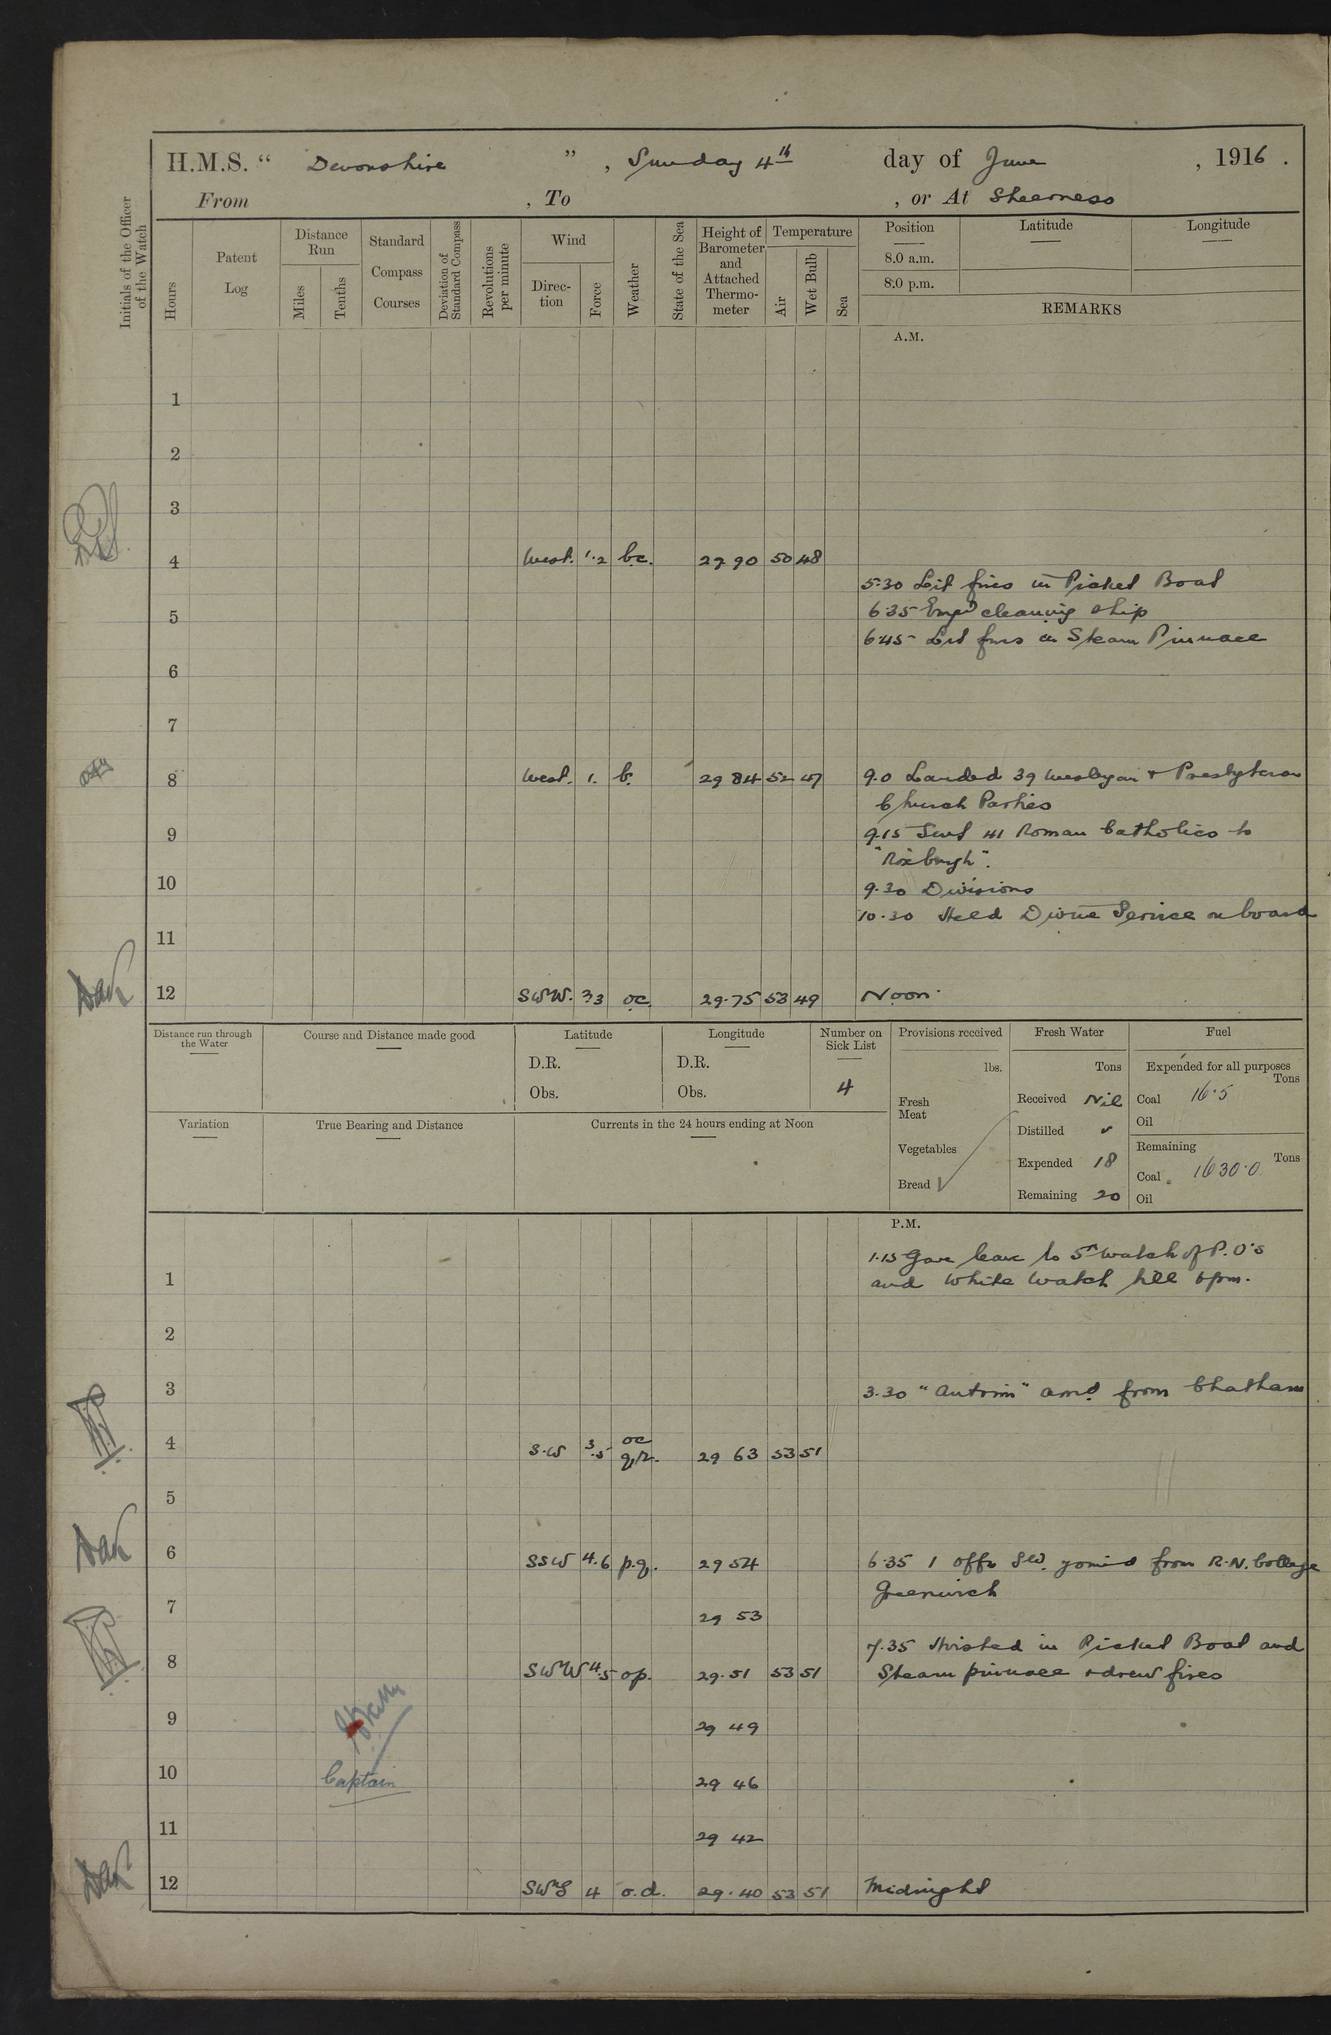 H.M.S. " Devonshire " , Sunday 4th day of June , 1916 .
From , To , or At Sheerness
Initials of the Officer of the Watch
Hours
Patent Log
Distance Run
Miles
Tenths
Standard Compass Courses
Deviation of Standard Compass
Revolutions per minute
Wind
Direction
Force
Weather
State of the Sea
Height of Barometer and Attached Thermometer
Temperature
Air
Wet Bulb
Sea
Position
8.0 a.m.
8.0 p.m.
Latitude
Longitude
REMARKS
A.M.
1
2
3
4 West. 1.2 b.c. 29 90 50 48
5.30 Lit fires in Picket Boat
5
6.35 Empd cleaning ship
6.45 Lit fires in Steam Pinnace
6
7
8 West. 1. b. 29 84 52 47 9.0 Landed 39 Wesleyan + Presbyterian
Church Parties
9
9.15 Sent 41 Roman Catholics to
"Roxburgh".
10
9.30 Divisions
10.30 Held Divine Service on board
11
12 SWW. 3 oc. 29.75 53 49 Noon.
Distance run through the Water
Course and Distance made good
Latitude
D.R.
Obs.
Longitude
D.R.
Obs.
Number on Sick List
4
Provisions received
lbs.
Fresh Meat
Vegetables
Bread
Fresh Water
Tons
Received Nil
Distilled
Expended 18
Remaining 20
Fuel
Expended for all purposes
Tons
Coal 16.5
Oil
Remaining
Tons
Coal 1630.0
Oil
Variation
True Bearing and Distance
Currents in the 24 hours ending at Noon
P.M.
1.15 Gave leave to Sd Watch of P.O's
1 and White Watch till 6 pm.
2
3 3.30 "Antrim" arrd from Chatham
4 S.W 3.5 oc q.r. 29 63 53 51
5
6 SSW 4.6 p.q. 29 54 6.35 1 offr Std. joined from R.N. College
Greenwich
7 29 53
7.35 Hoisted in Picket Boat and
8 SWW 4.5 op. 29.51 53 51 Steam pinnace + drew fires
9 29 49
Captain
10 29 46
11 29 42
12 SWS 4 o.d. 29.40 53 51 Midnight